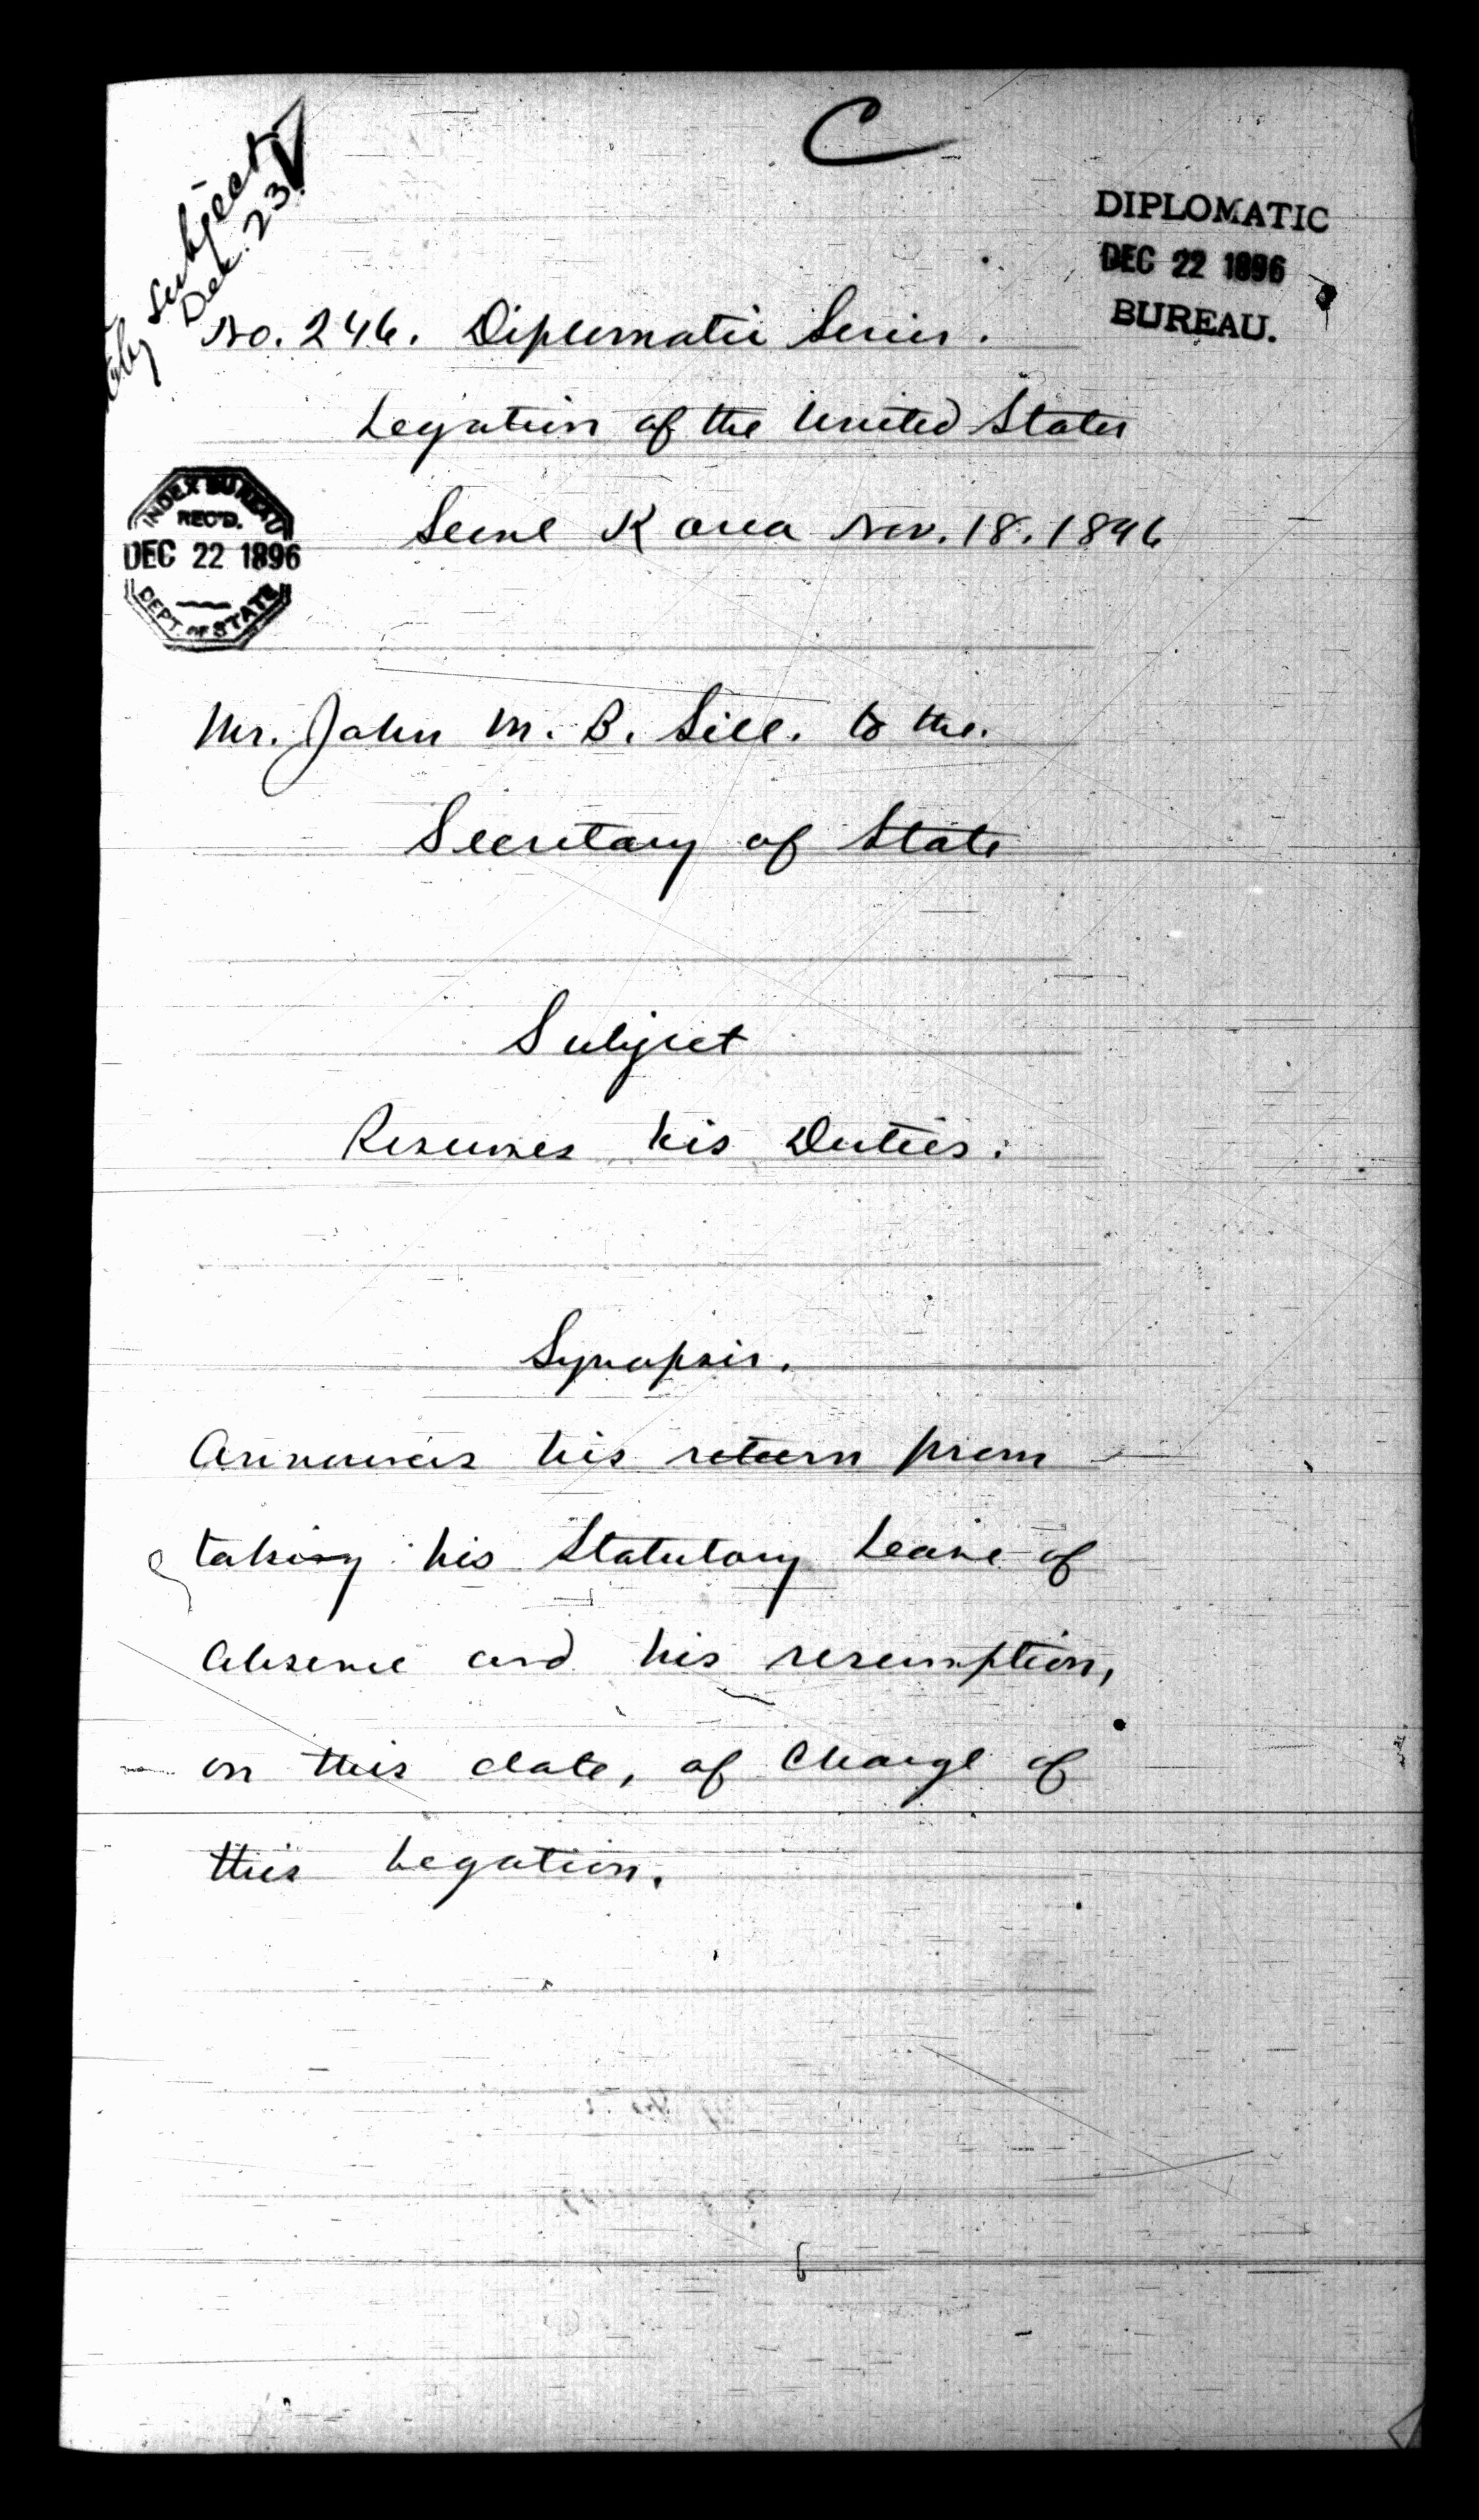 C
Subject
Dec. 23.
DIPLOMATIC
DEC 22 1896
BUREAU.
No. 246. Diplomatic Series.
Legation of the United States
INDEX BUREAU
REC'D.
DEC 22 1896
DEPT. OF STATE
Seoul Korea Nov. 18. 1896
Mr. John M. B. Sill. to the.
Secretary of State
Subject
Resumes his Duties.
Synopsis.
Announces his return from
taking his Statutory Leave of
absence and his resumption,
on this date, of Charge of
this Legation.